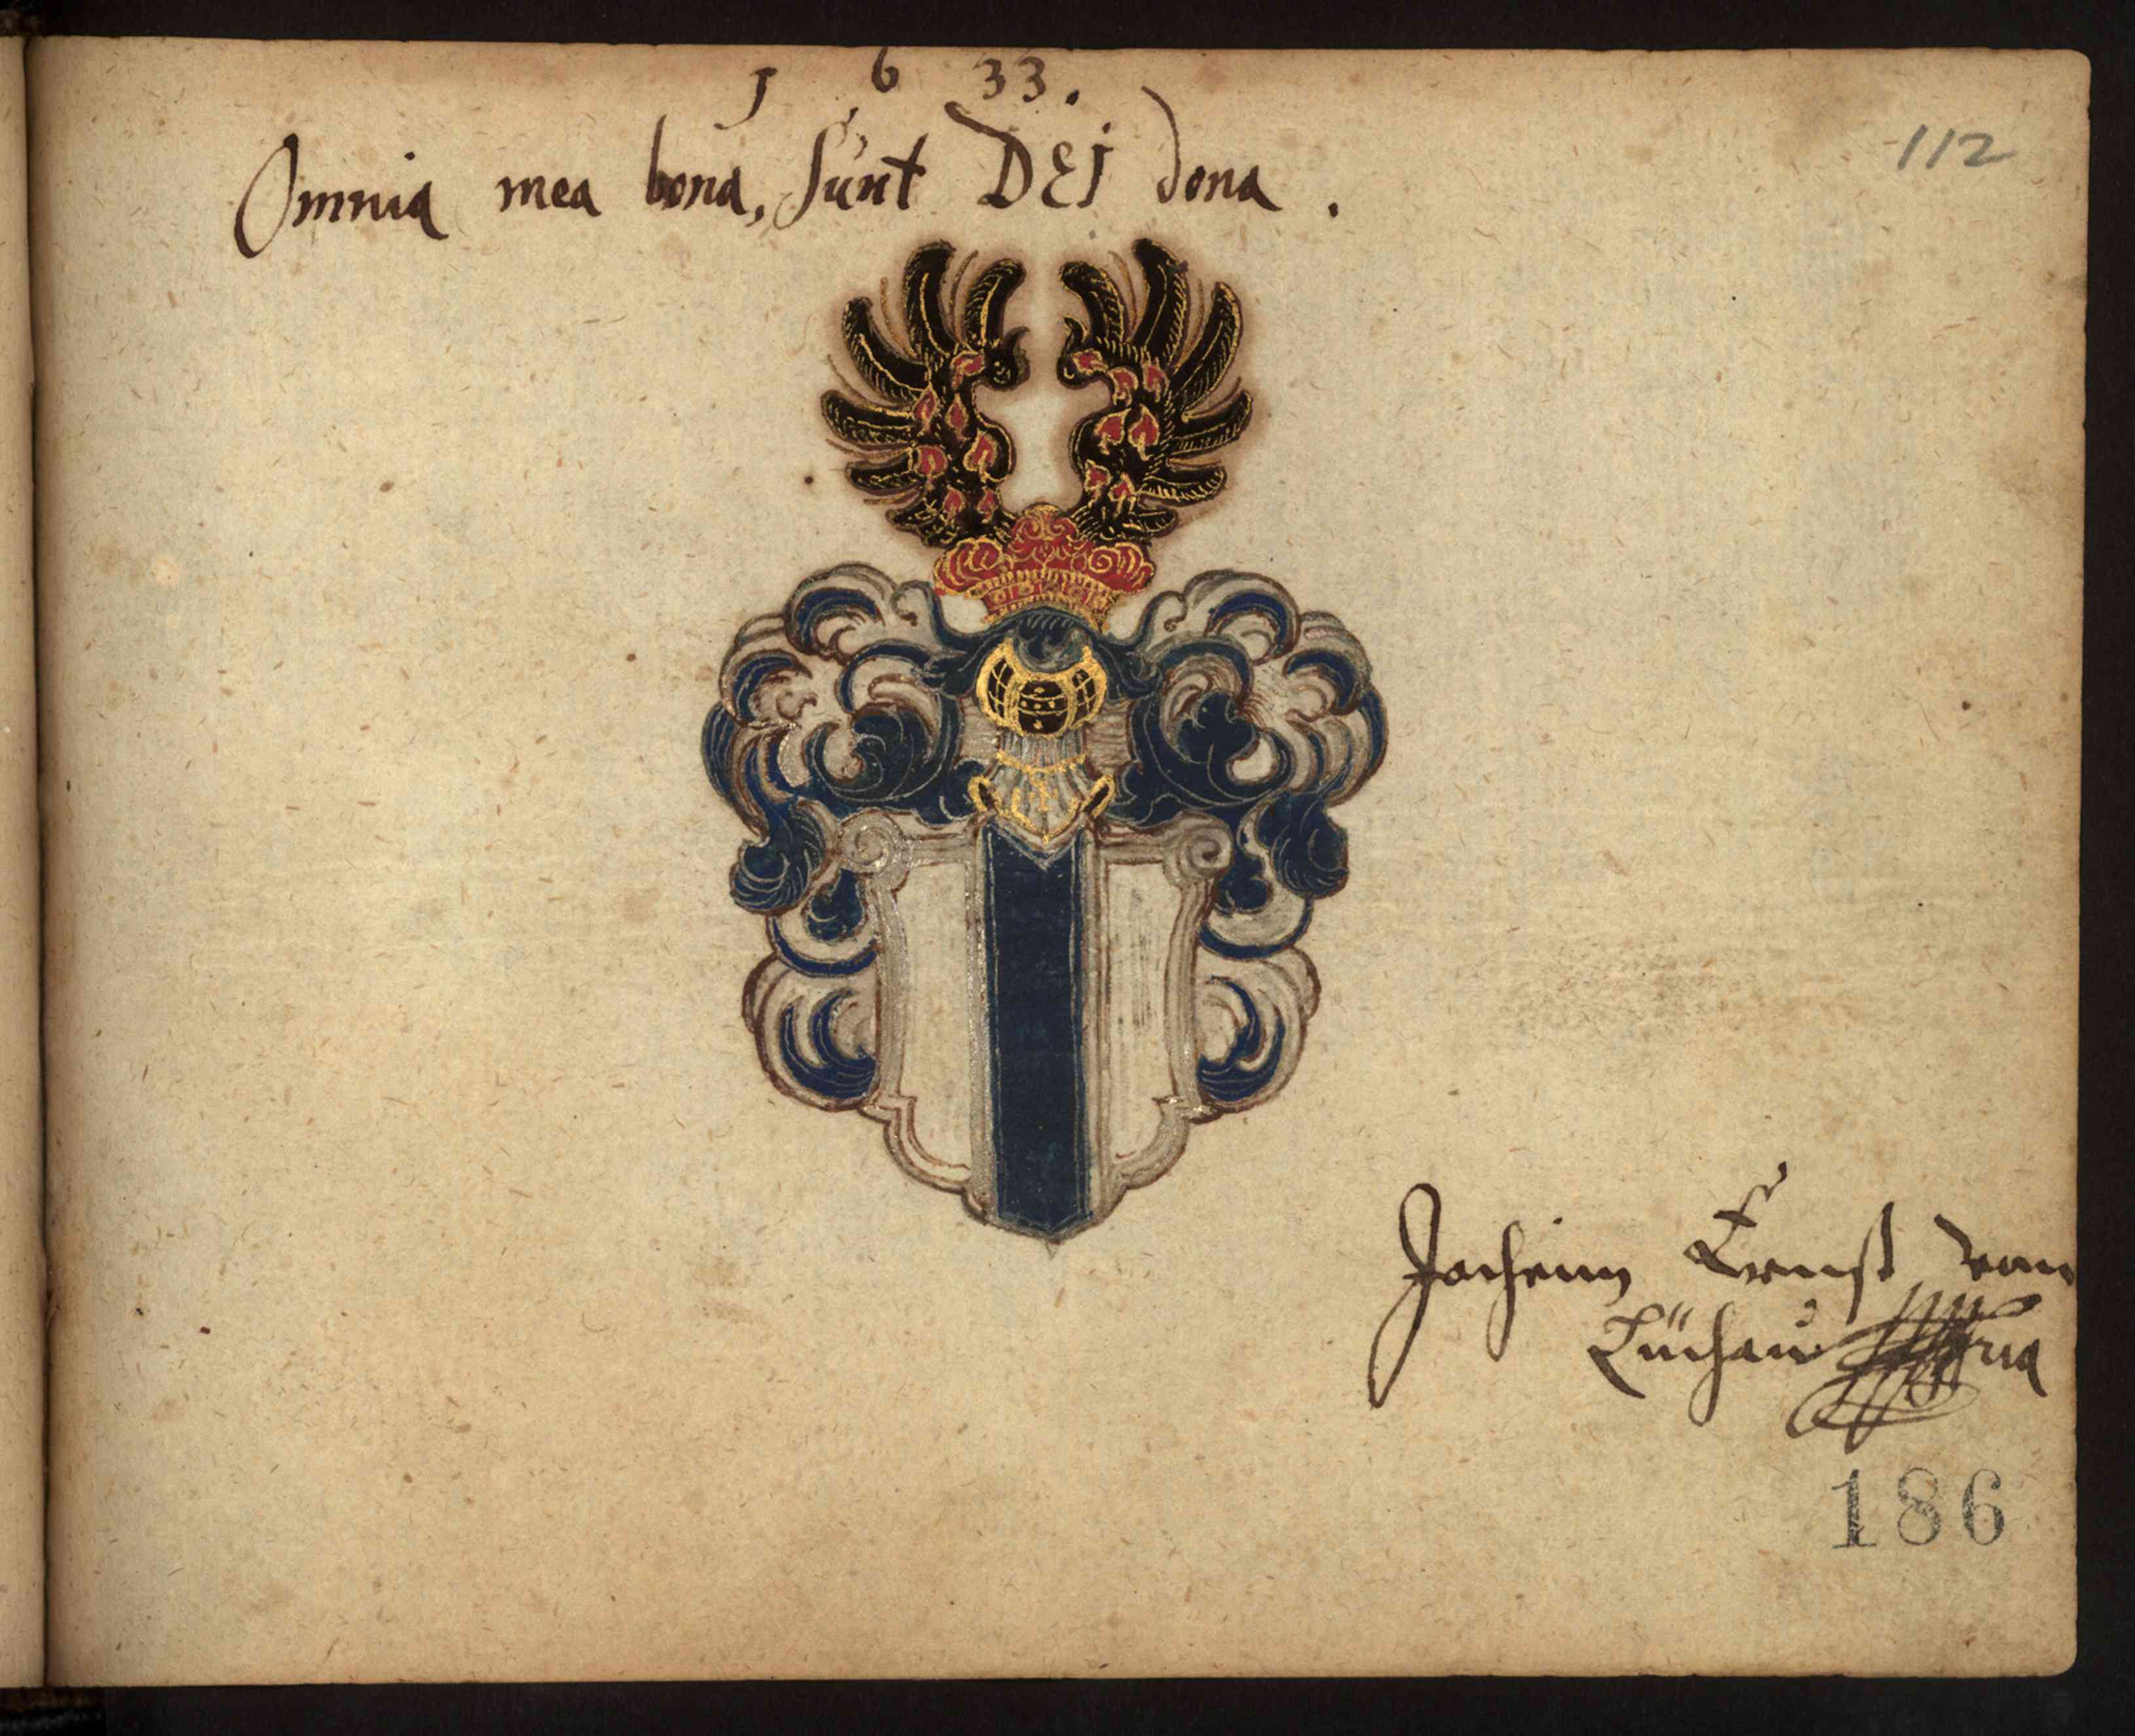 1 6 33.
112
Omnia mea bona, sunt DEI dona.
Jacheim Ernst von
Lüchau
186